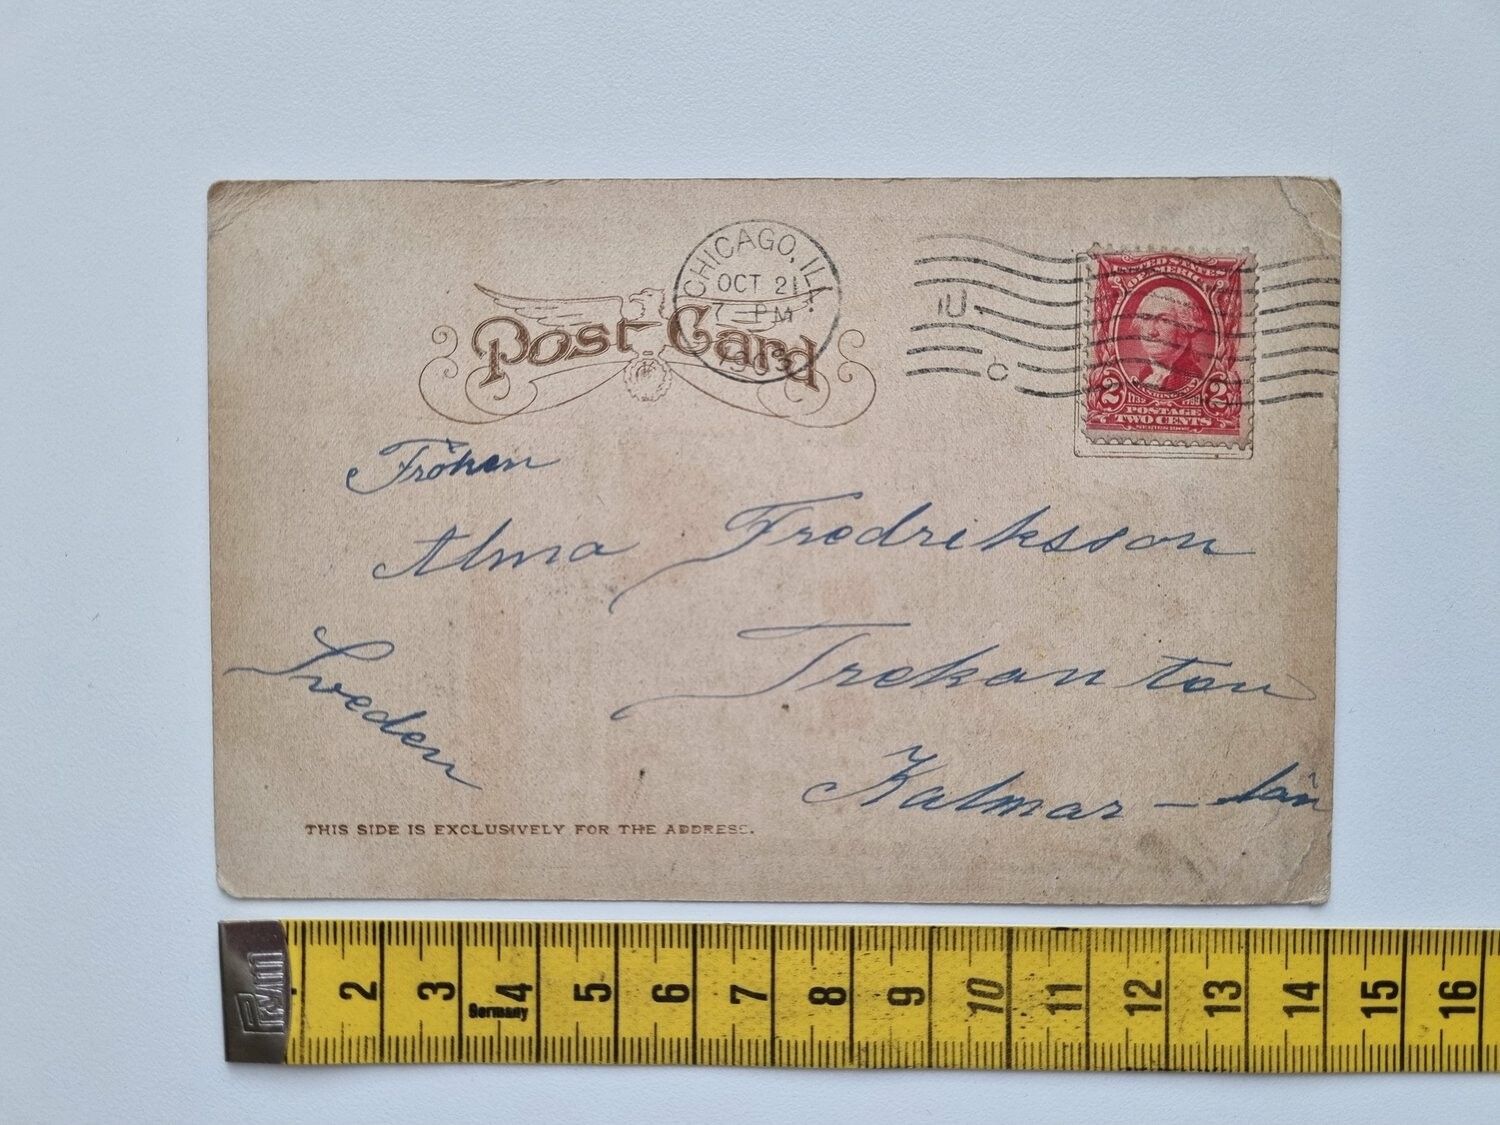 CHICAGO, ILL.
OCT 21
7-PM
Post Card
UNITED STATES
OF AMERICA
WASHINGTON
1732 1799
2 2
POSTAGE
TWO CENTS
SERIES 1902
Fröken
Alma Fredriksson
Trekanten
Sweden
Kalmar - län
THIS SIDE IS EXCLUSIVELY FOR THE ADDRESS.
Prym
2 3 4 5 6 7 8 9 10 11 12 13 14 15 16
Germany